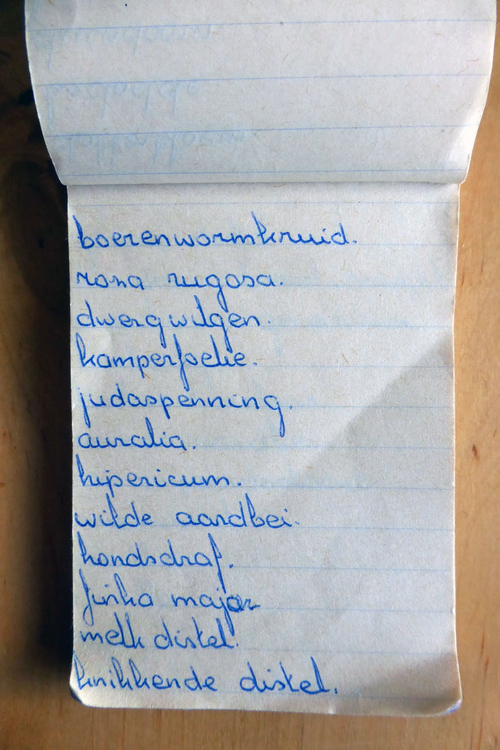 boerenwormkruid.
rosa rugosa.
dwergwilgen.
kamperfoelie.
judaspenning.
auralia.
hipericum.
wilde aardbei.
hondsdraf.
finka major
melk distel.
knikkende distel.